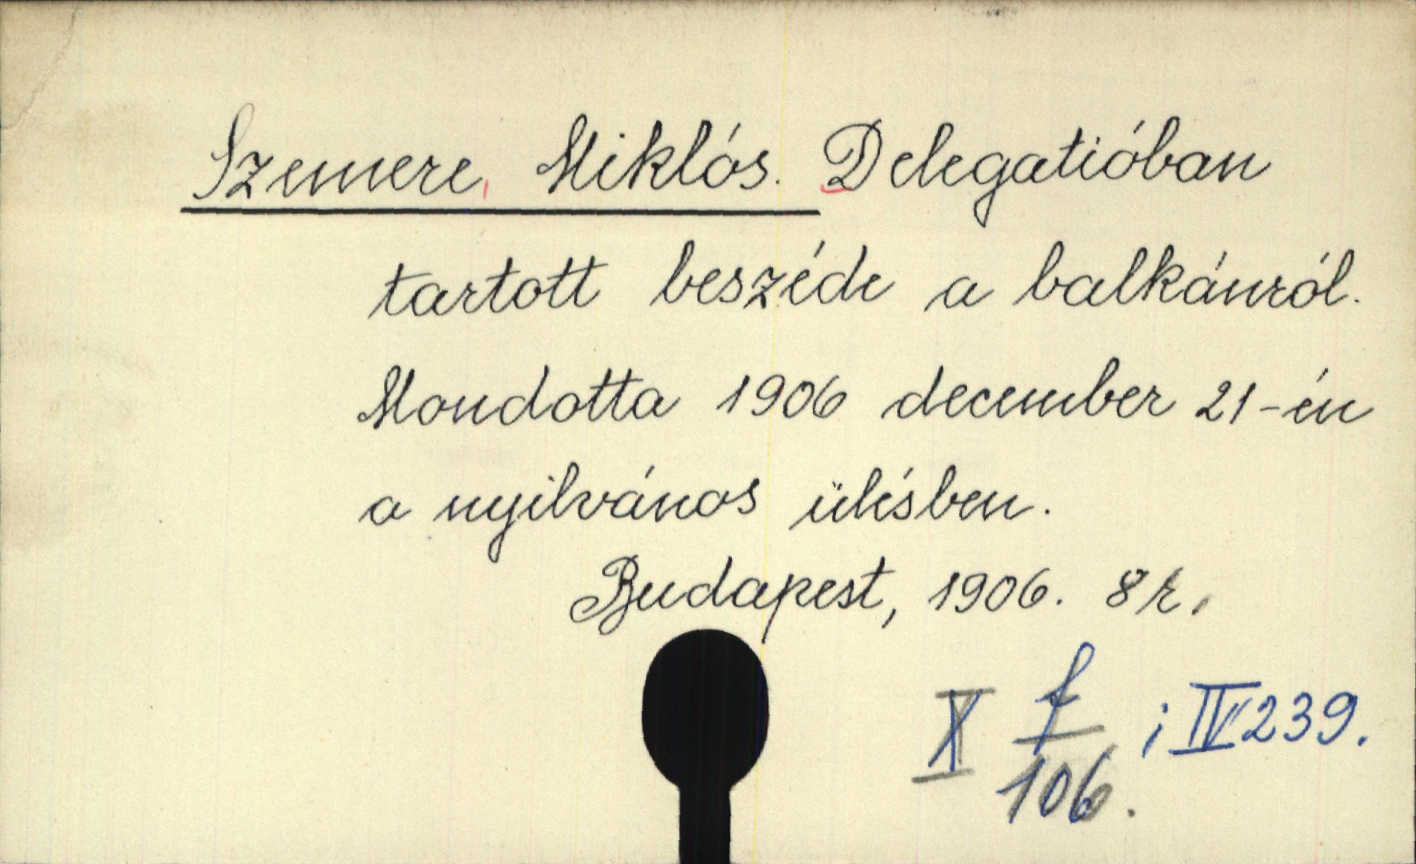 Szemere, Miklós. Delegatióban
tartott beszéde a balkánról.
Mondotta 1906 december 21-én
a nyilvános ülésben.
Budapest, 1906. 8r.
X f/106. ; IV 239.